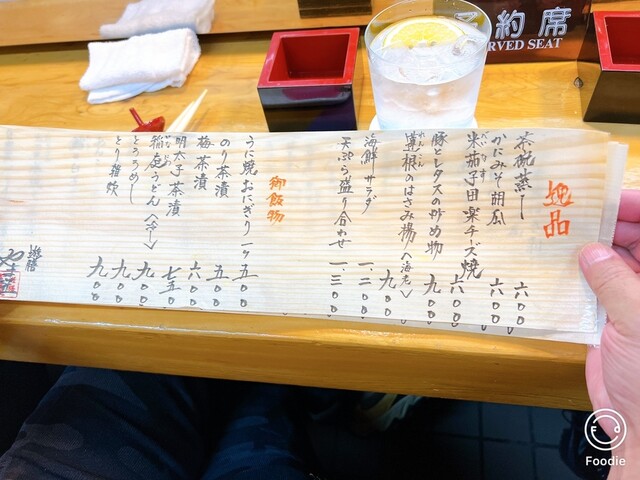 予約席
RVED SEAT
逸品
茶碗蒸し 六〇〇
かにみそ胡瓜 六〇〇
米茄子田楽チーズ焼 六〇〇
豚とレタスの炒め物 九〇〇
蓮根のはさみ揚〈海老〉 九〇〇
海鮮サラダ 一、二〇〇
天ぷら盛り合わせ 一、三〇〇
御飯物
うに焼おにぎり 一ケ 五〇〇
のり茶漬 五〇〇
梅茶漬 六〇〇
明太子茶漬 七五〇
稲庭うどん〈冷〉 九〇〇
とろろめし 九〇〇
とり雑炊 九〇〇
Foodie